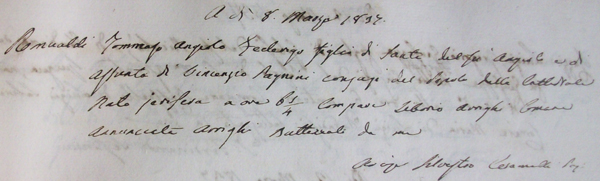 A dì 8. Marzo 1837.
Romualdi Tommaso Angelo figlio di Sante del Angelo e di
Assunta di Vincenzo Pagnoni conjugi del Popolo della Cattedrale
Nato jeri sera a ore 6 1/4 Compare Liborio Arrighi Comare
Annunziata Arrighi Battezzati da me
Silvestro